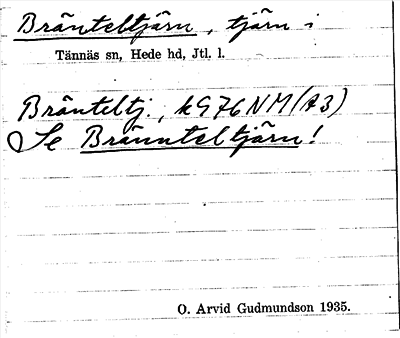 Bränteltjärn, tjärn i
Tännäs sn, Hede hd, Jtl. l.
Bränteltj., k976NM(A3)
Se Brännteltjärn!
O. Arvid Gudmundson 1935.